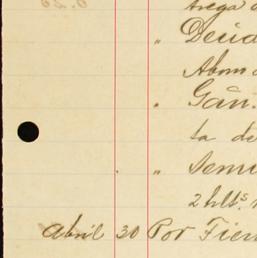 trega
" Decid
Abon
" Gân.
ta de
" Semi
2 hlts.
Abril 30 Por Fier